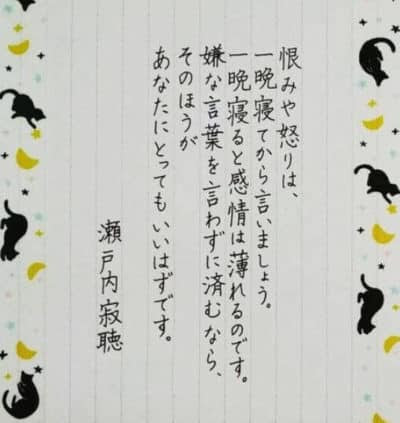 恨みや怒りは、
一晩寝てから言いましょう。
一晩寝ると感情は薄れるのです。
嫌な言葉を言わずに済むなら、
そのほうが
あなたにとってもいいはずです。
瀬戸内寂聴